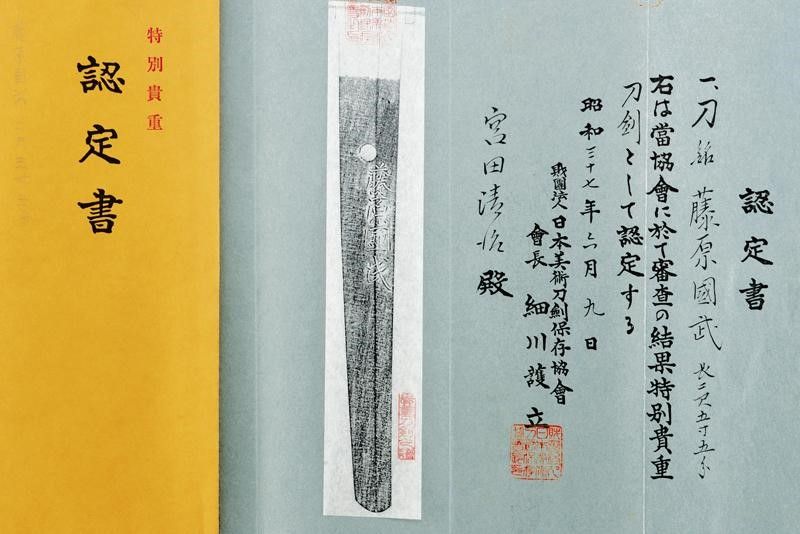 特別貴重
認定書
認定書
一、刀 銘 藤原國武 長二尺五寸五分
右は當協會に於て審査の結果特別貴重
刀剣として認定する
昭和三十七年六月九日
財團法人日本美術刀劍保存協會
會長 細川護立
宮田 殿
藤原國武